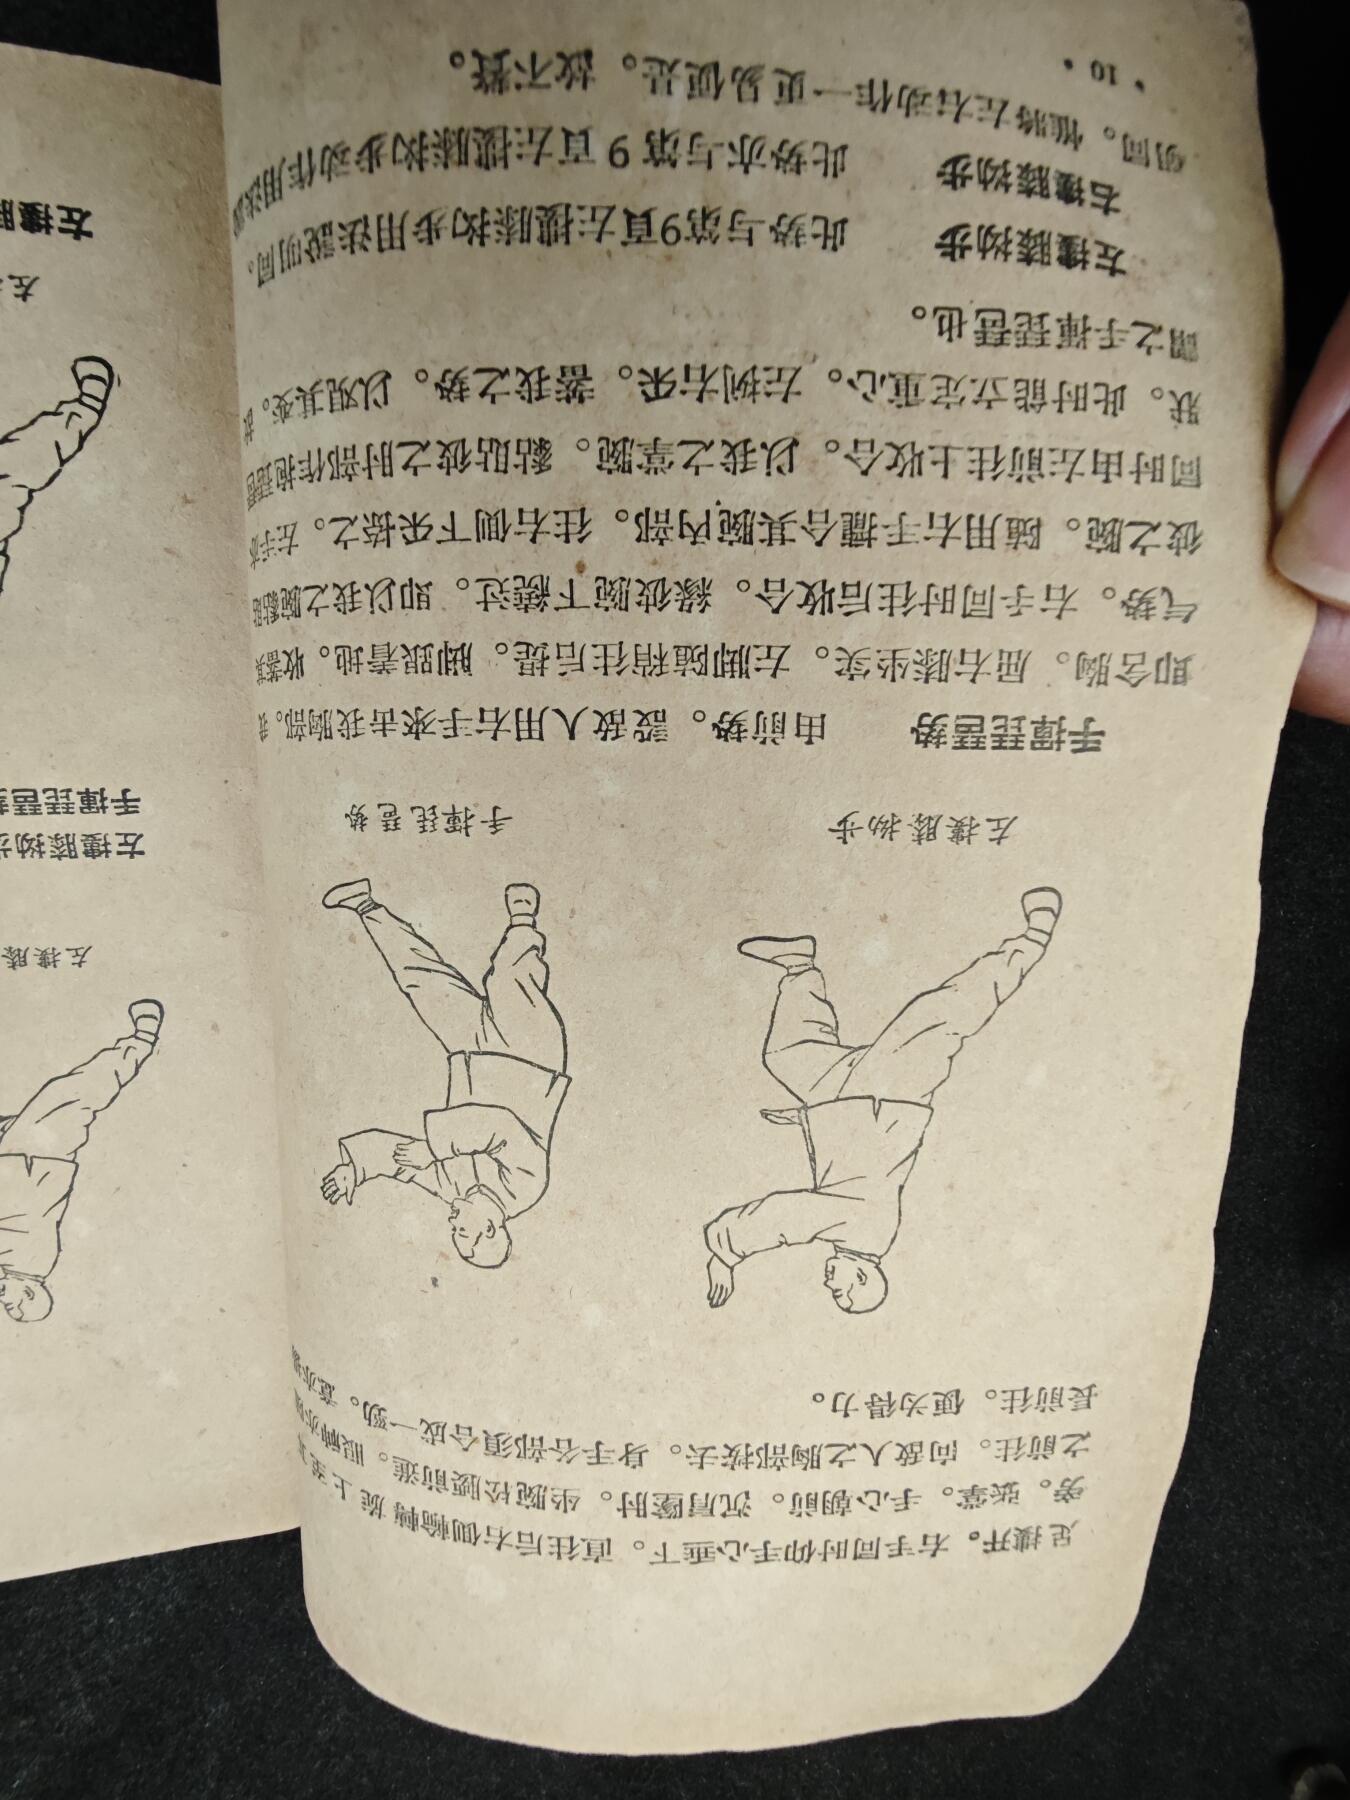 足摟开。右手同时仰手心垂下。直往后右側輪轉旋上至
旁。张掌。手心朝前。沉肩墜肘。坐腕松腰前進。眼神亦
之前往。向敌人之胸部按去。身手各部須合成一勁。意亦
長前往。便为得力。
左摟膝拗步
手揮琵琶势
手揮琵琶势 由前势。設敌人用右手来击我胸部。我
即含胸。屈右膝坐实。左脚随稍往后提。脚跟着地。收蓄其
气势。右手同时往后收合。緣彼腕下繞过。即以我之腕黏貼
彼之腕。随用右手擸合其腕內部。往右側下采捺之。左手亦
同时由左前往上收合。以我之掌腕。黏貼彼之肘部作抱琵琶
狀。此时能立定重心。左挒右采。蓄我之势。以观其变。故
謂之手揮琵琶也。
左摟膝拗步 此势与第9頁左摟膝拗步用法說明同。
右摟膝拗步 此势亦与第9頁左摟膝拗步动作用法說
明同。惟將左右动作一更易便是。故不贅。
·10·
左
左摟
左摟膝
左摟膝拗步
手揮琵琶